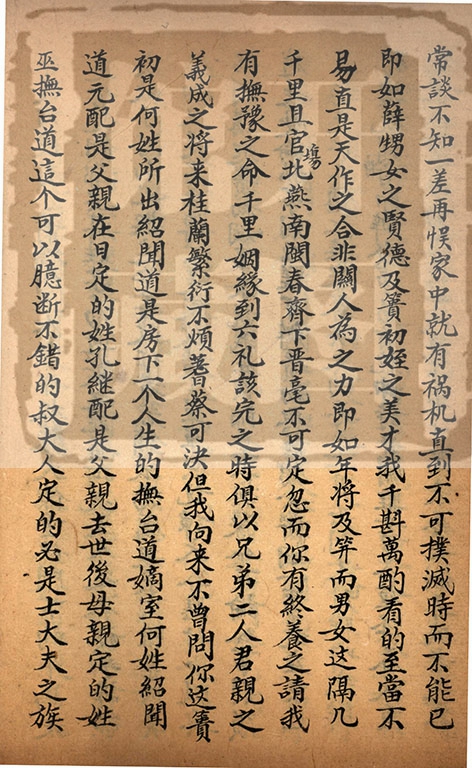 常談不知一差再悮家中就有祸机直到不可撲滅時而不能已
即如薛甥女之賢德及簣初姪之美才我千斟萬酌看的至當不
易直是天作之合非關人為之力即如年將及笄而男女这隔几
千里且官塲北燕南閩春齊下晋毫不可定忽而你有終養之請我
有撫豫之命千里姻緣到六礼該完之時俱以兄弟二人君親之
義成之将来桂蘭繁衍不煩蓍蔡可決但我向来不曾問你这簣
初是何姓所出紹聞道是房下一个人生的撫台道嫡室何姓紹聞
道元配是父親在日定的姓孔継配是父親去世後母親定的姓
巫撫台道這个可以臆断不錯的叔大人定的必是士大夫之族